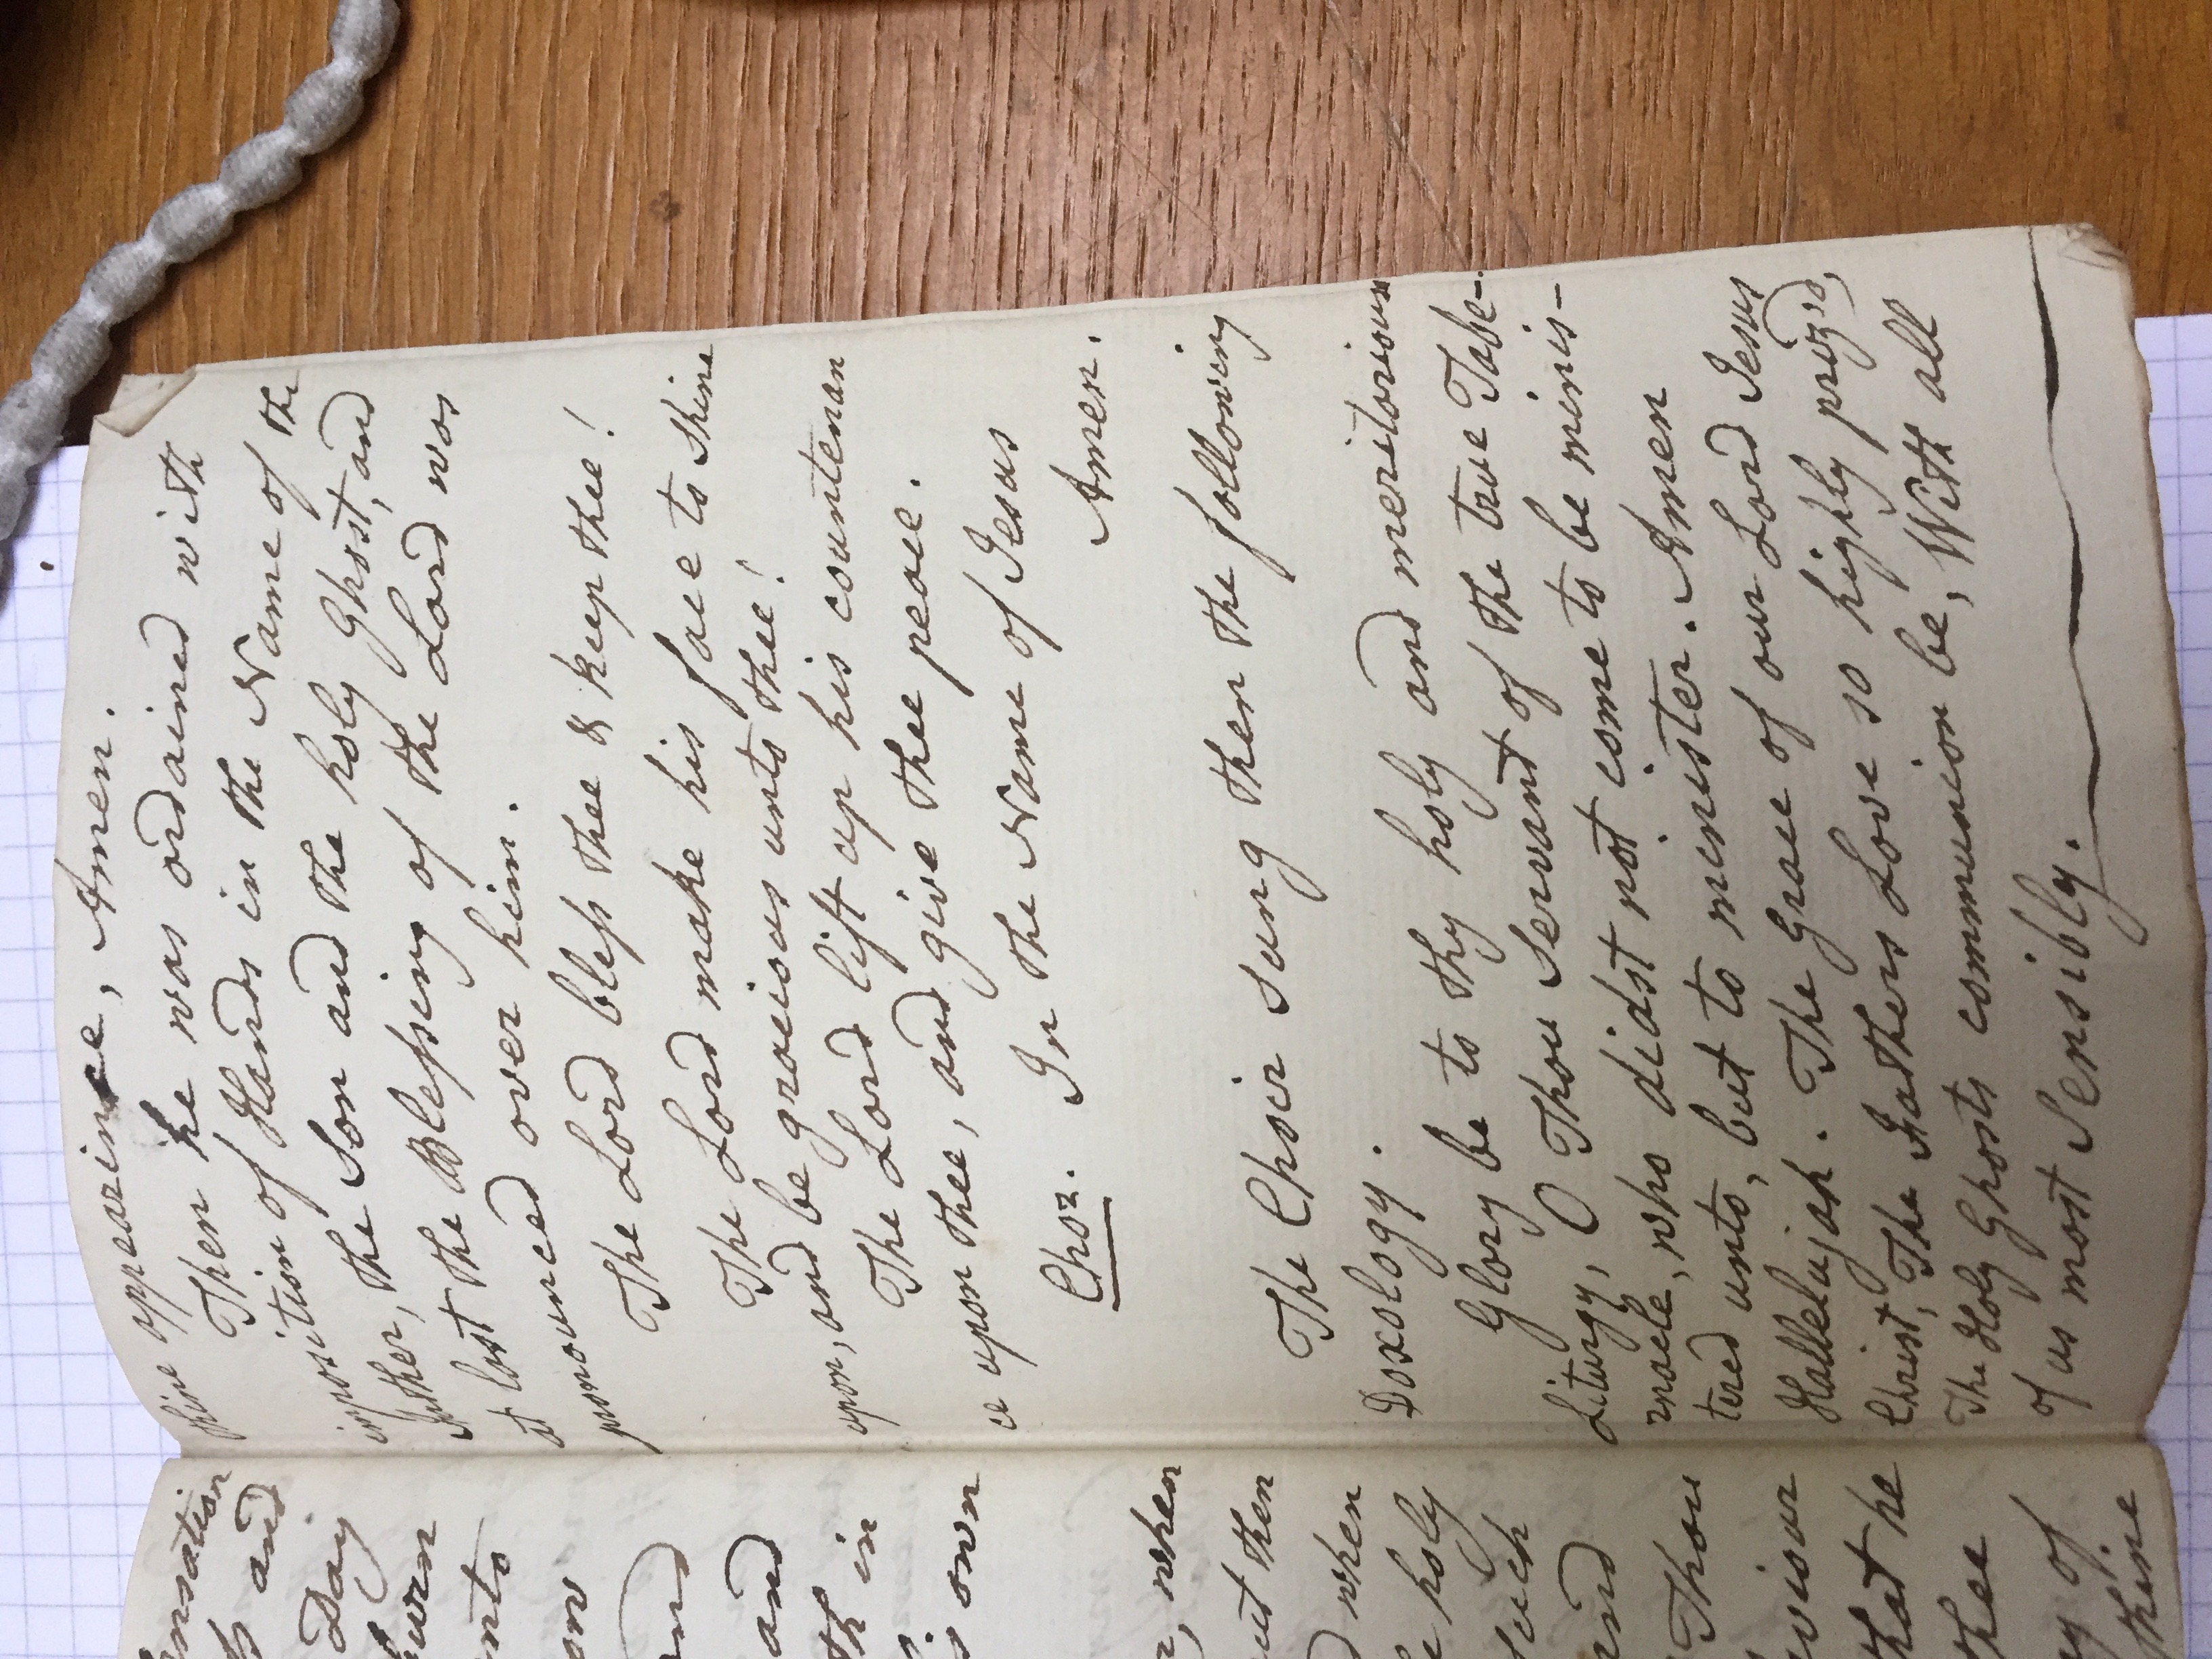 ensation
and
Day
burn
unto
ow
and
and
th in
is own
when
ut then
when
holy
such
and
Thou
aviour
that he
thee
of
thine
thine appearince, Amen.
Then he was ordained with
imposition of Hands in the Name of the
Father, the Son and the holy Ghost, and
at last the Bleſsing of the Lord was
pronounced over him.
The Lord bleſs thee & keep thee!
The Lord make his face to shine
upon, and be gracious unto thee!
The Lord lift up his countenan
ce upon thee, and give thee peace.
Chor. In the Name of Jesus
Amen.
The Choir sung then the following
Doxology.
Glory be to thy holy and meritorious
Liturgy, O Thou Servant of the true Tabe-
rnacle, who didst not come to be minis-
tered unto, but to minister. Amen
Hallelujah. The Grace of our Lord Jesus
Christ, The Fathers Love so highly priz'd,
The Holy Ghosts communion be, With all
of us most Sensibly.